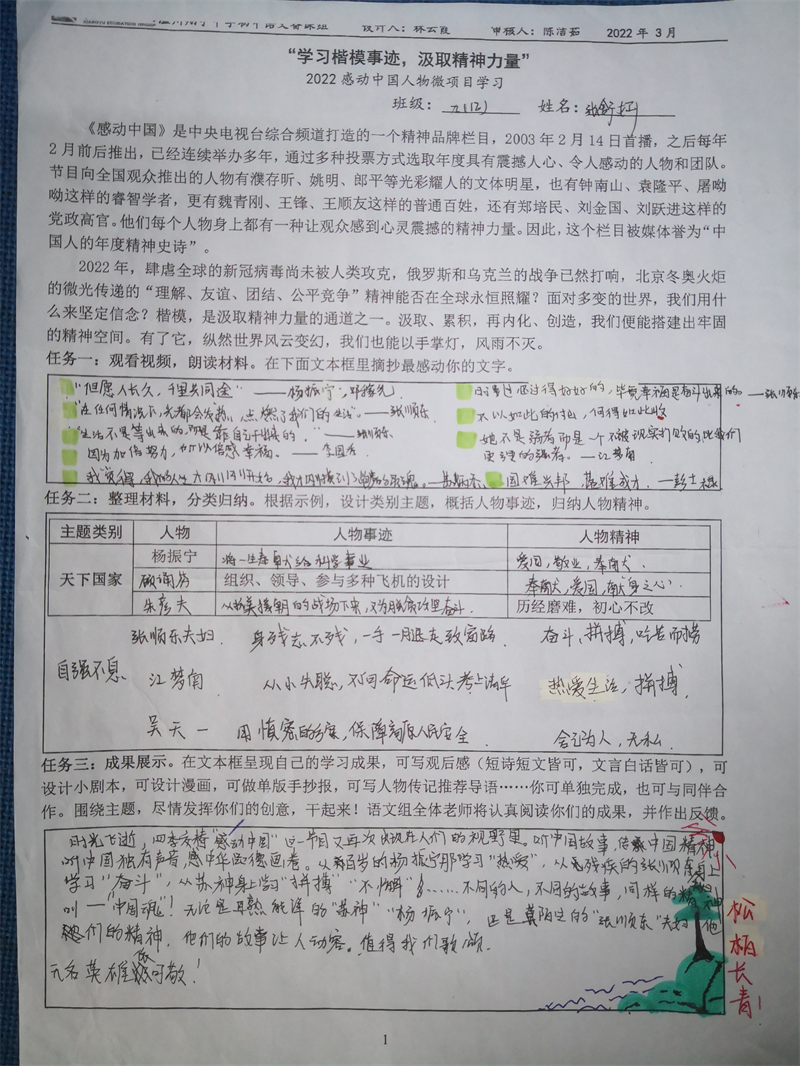 初中语文备课组 设计人：林云霞 审核人：陈洁茹 2022 年 3 月
“学习楷模事迹，汲取精神力量”
2022 感动中国人物微项目学习
班级： 姓名：
《感动中国》是中央电视台综合频道打造的一个精神品牌栏目，2003 年 2 月 14 日首播，之后每年
2 月前后推出，已经连续举办多年，通过多种投票方式选取年度具有震撼人心、令人感动的人物和团队。
节目向全国观众推出的人物有濮存昕、姚明、郎平等光彩耀人的文体明星，也有钟南山、袁隆平、屠呦
呦这样的睿智学者，更有魏青刚、王锋、王顺友这样的普通百姓，还有郑培民、刘金国、刘跃进这样的
党政高官。他们每个人物身上都有一种让观众感到心灵震撼的精神力量。因此，这个栏目被媒体誉为“中
国人的年度精神史诗”。
2022 年，肆虐全球的新冠病毒尚未被人类攻克，俄罗斯和乌克兰的战争已然打响，北京冬奥火炬
的微光传递的“理解、友谊、团结、公平竞争”精神能否在全球永恒照耀？面对多变的世界，我们用什
么来坚定信念？楷模，是汲取精神力量的通道之一。汲取、累积，再内化、创造，我们便能搭建出牢固
的精神空间。有了它，纵然世界风云变幻，我们也能以手掌灯，风雨不灭。
任务一：观看视频，朗读材料。在下面文本框里摘抄最感动你的文字。
“但愿人长久，千里共同途” ——杨振宁
“在任何情况下，光都会发热，点燃了我们的生活”。——张顺东
“生活不是等出来的，而是靠自己干出来的。” ——张顺东
因为加倍努力，所以倍感幸福。
日子要过还过得好好的，毕竟幸福是奋斗出来的。——张顺东
不以如此的拙，何得如此妙
她不是弱者而是一个不被现实打败的比我们
更坚强的强者。——江梦南
国难兴邦
任务二：整理材料，分类归纳。根据示例，设计类别主题，概括人物事迹，归纳人物精神。
主题类别 人物 人物事迹 人物精神
天下国家 杨振宁 将一生奉献给科学事业 爱国，敬业，奉献
顾诵芬 组织、领导、参与多种飞机的设计 奉献，爱国，献身之心
朱彦夫 从抗美援朝的战场下来，又为脱贫攻坚奋斗 历经磨难，初心不改
张顺东夫妇 身残志不残，一手一脚走致富路 奋斗，拼搏，吃苦而耐劳
自强不息 江梦南 从小失聪，不向命运低头考上清华 热爱生活，拼搏
吴天一 用慎密的态度，保障高原人民安全 舍己为人，无私
任务三：成果展示。在文本框呈现自己的学习成果，可写观后感（短诗短文皆可，文言白话皆可），可
设计小剧本，可设计漫画，可做单版手抄报，可写人物传记推荐导语……你可单独完成，也可与同伴合
作。围绕主题，尽情发挥你们的创意，干起来！语文组全体老师将认真阅读你们的成果，并作出反馈。
时光飞逝，四季交替“感动中国”这一节目又再次出现在人们的视野里。听中国故事，传承中国精神
听中国独有声音，感中华坚德画卷。从百岁的杨振宁那学习“热爱”，从身残疾的张顺东身上
学习“奋斗”，从苏神身上学习“拼搏”“不懈”……不同的人，不同的故事，同样的精神
叫一“中国魂”！无论是耳熟能详的“苏神”“杨振宁”，还是莫陌生的“张顺东”夫妇 他
们的精神，他们的故事让人动容。值得我们歌颂。
无名英雄 可敬！
松柏长青！
1